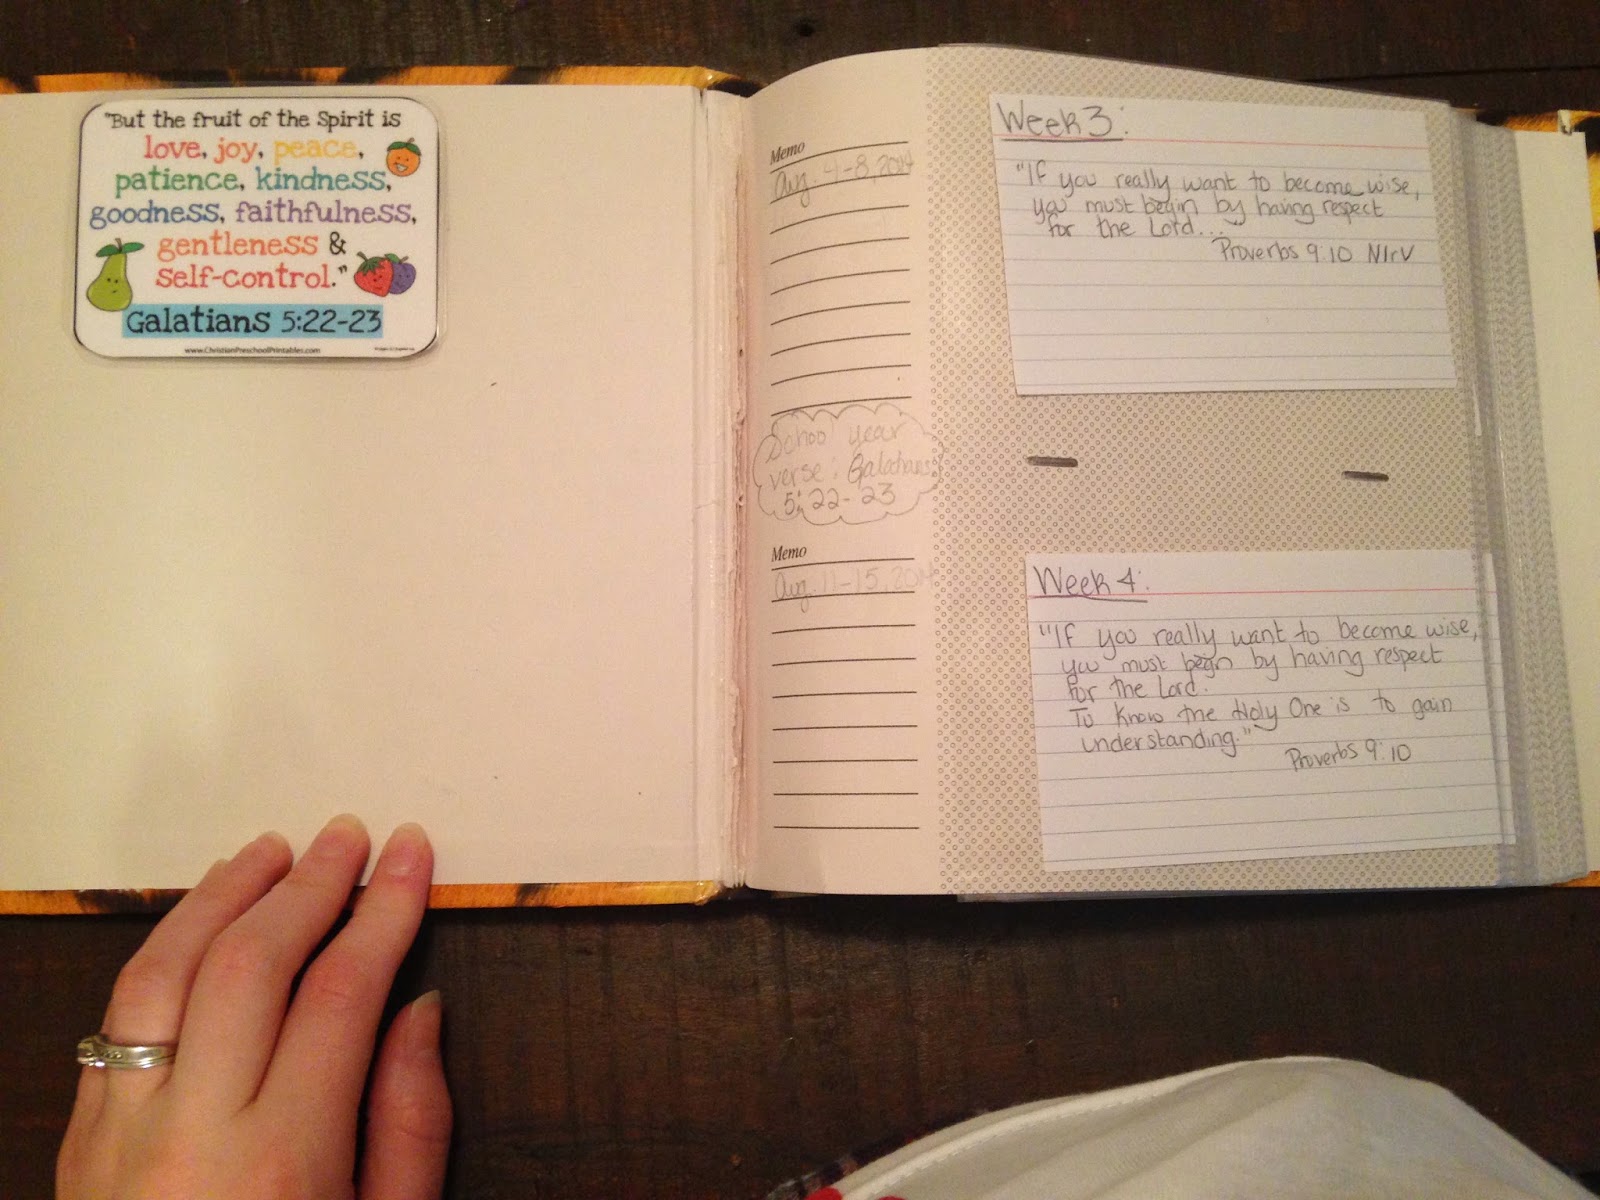 "But the fruit of the Spirit is
love, joy, peace,
patience, kindness,
goodness, faithfulness,
gentleness &
self-control."
Galatians 5:22-23
www.ChristianPreschoolPrintables.com
Memo
Aug. 4-8, 2014
School year
verse: Galatians
5:22-23
Memo
Aug. 11-15, 2014
Week 3:
"If you really want to become wise,
you must begin by having respect
for the Lord...
Proverbs 9:10 NIrV
Week 4:
"If you really want to become wise,
you must begin by having respect
for the Lord.
To know the Holy One is to gain
understanding."
Proverbs 9:10